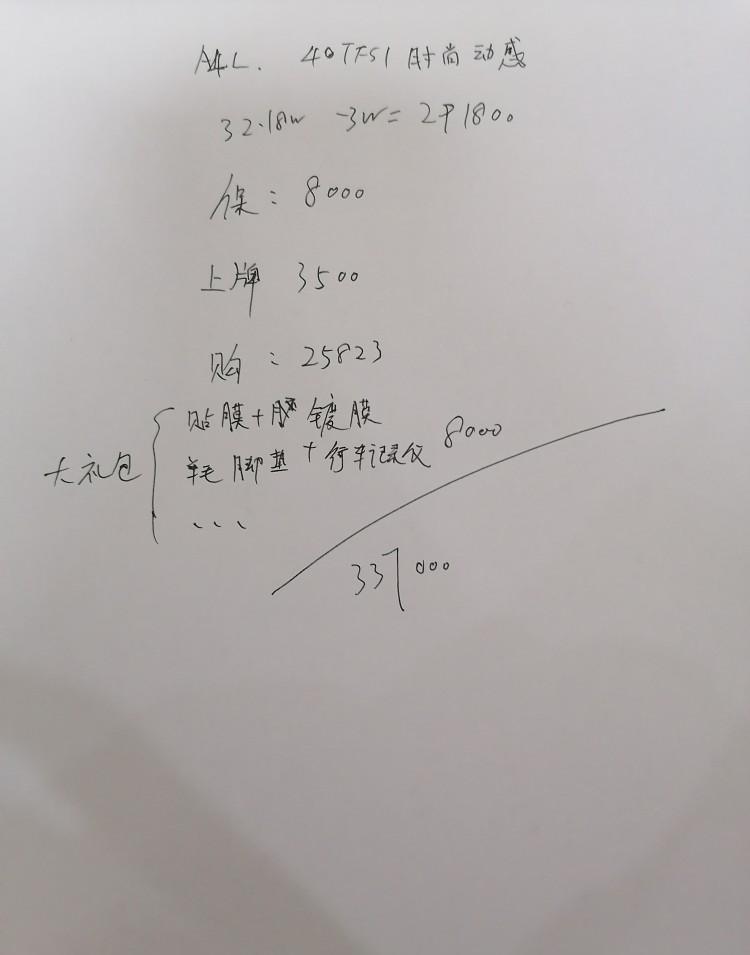 A4L. 40TFSI 时尚动感
32.18w -3w= 291800
保: 8000
上牌 3500
购: 25823
贴膜+ 镀膜
大礼包 羊毛脚垫+行车记录仪 8000
、、、
337000